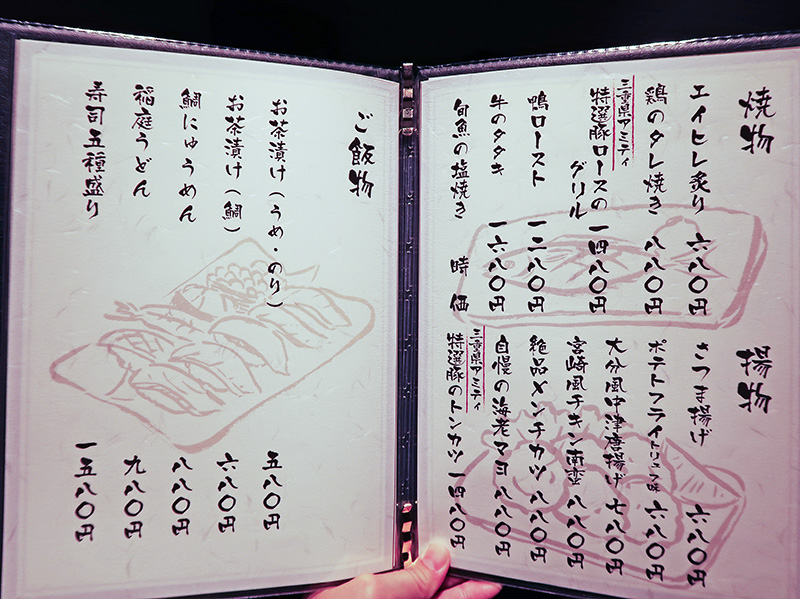 焼物
エイヒレ炙り 六八〇円
鶏のタレ焼き 八八〇円
三重県アミティ
特選豚ロースの
グリル 一四八〇円
鴨ロースト 一二八〇円
牛のタタキ 一六八〇円
旬魚の塩焼き 時価
揚物
さつま揚げ 六八〇円
ポテトフライトリュフ味 六八〇円
大分風中津唐揚げ 七八〇円
宮崎風チキン南蛮 八八〇円
絶品メンチカツ 八八〇円
自慢の海老マヨ 八八〇円
三重県アミティ
特選豚のトンカツ 一四八〇円
ご飯物
お茶漬け(うめ・のり) 五八〇円
お茶漬け(鯛) 六八〇円
鯛にゅうめん 八八〇円
稲庭うどん 九八〇円
寿司五種盛り 一五八〇円